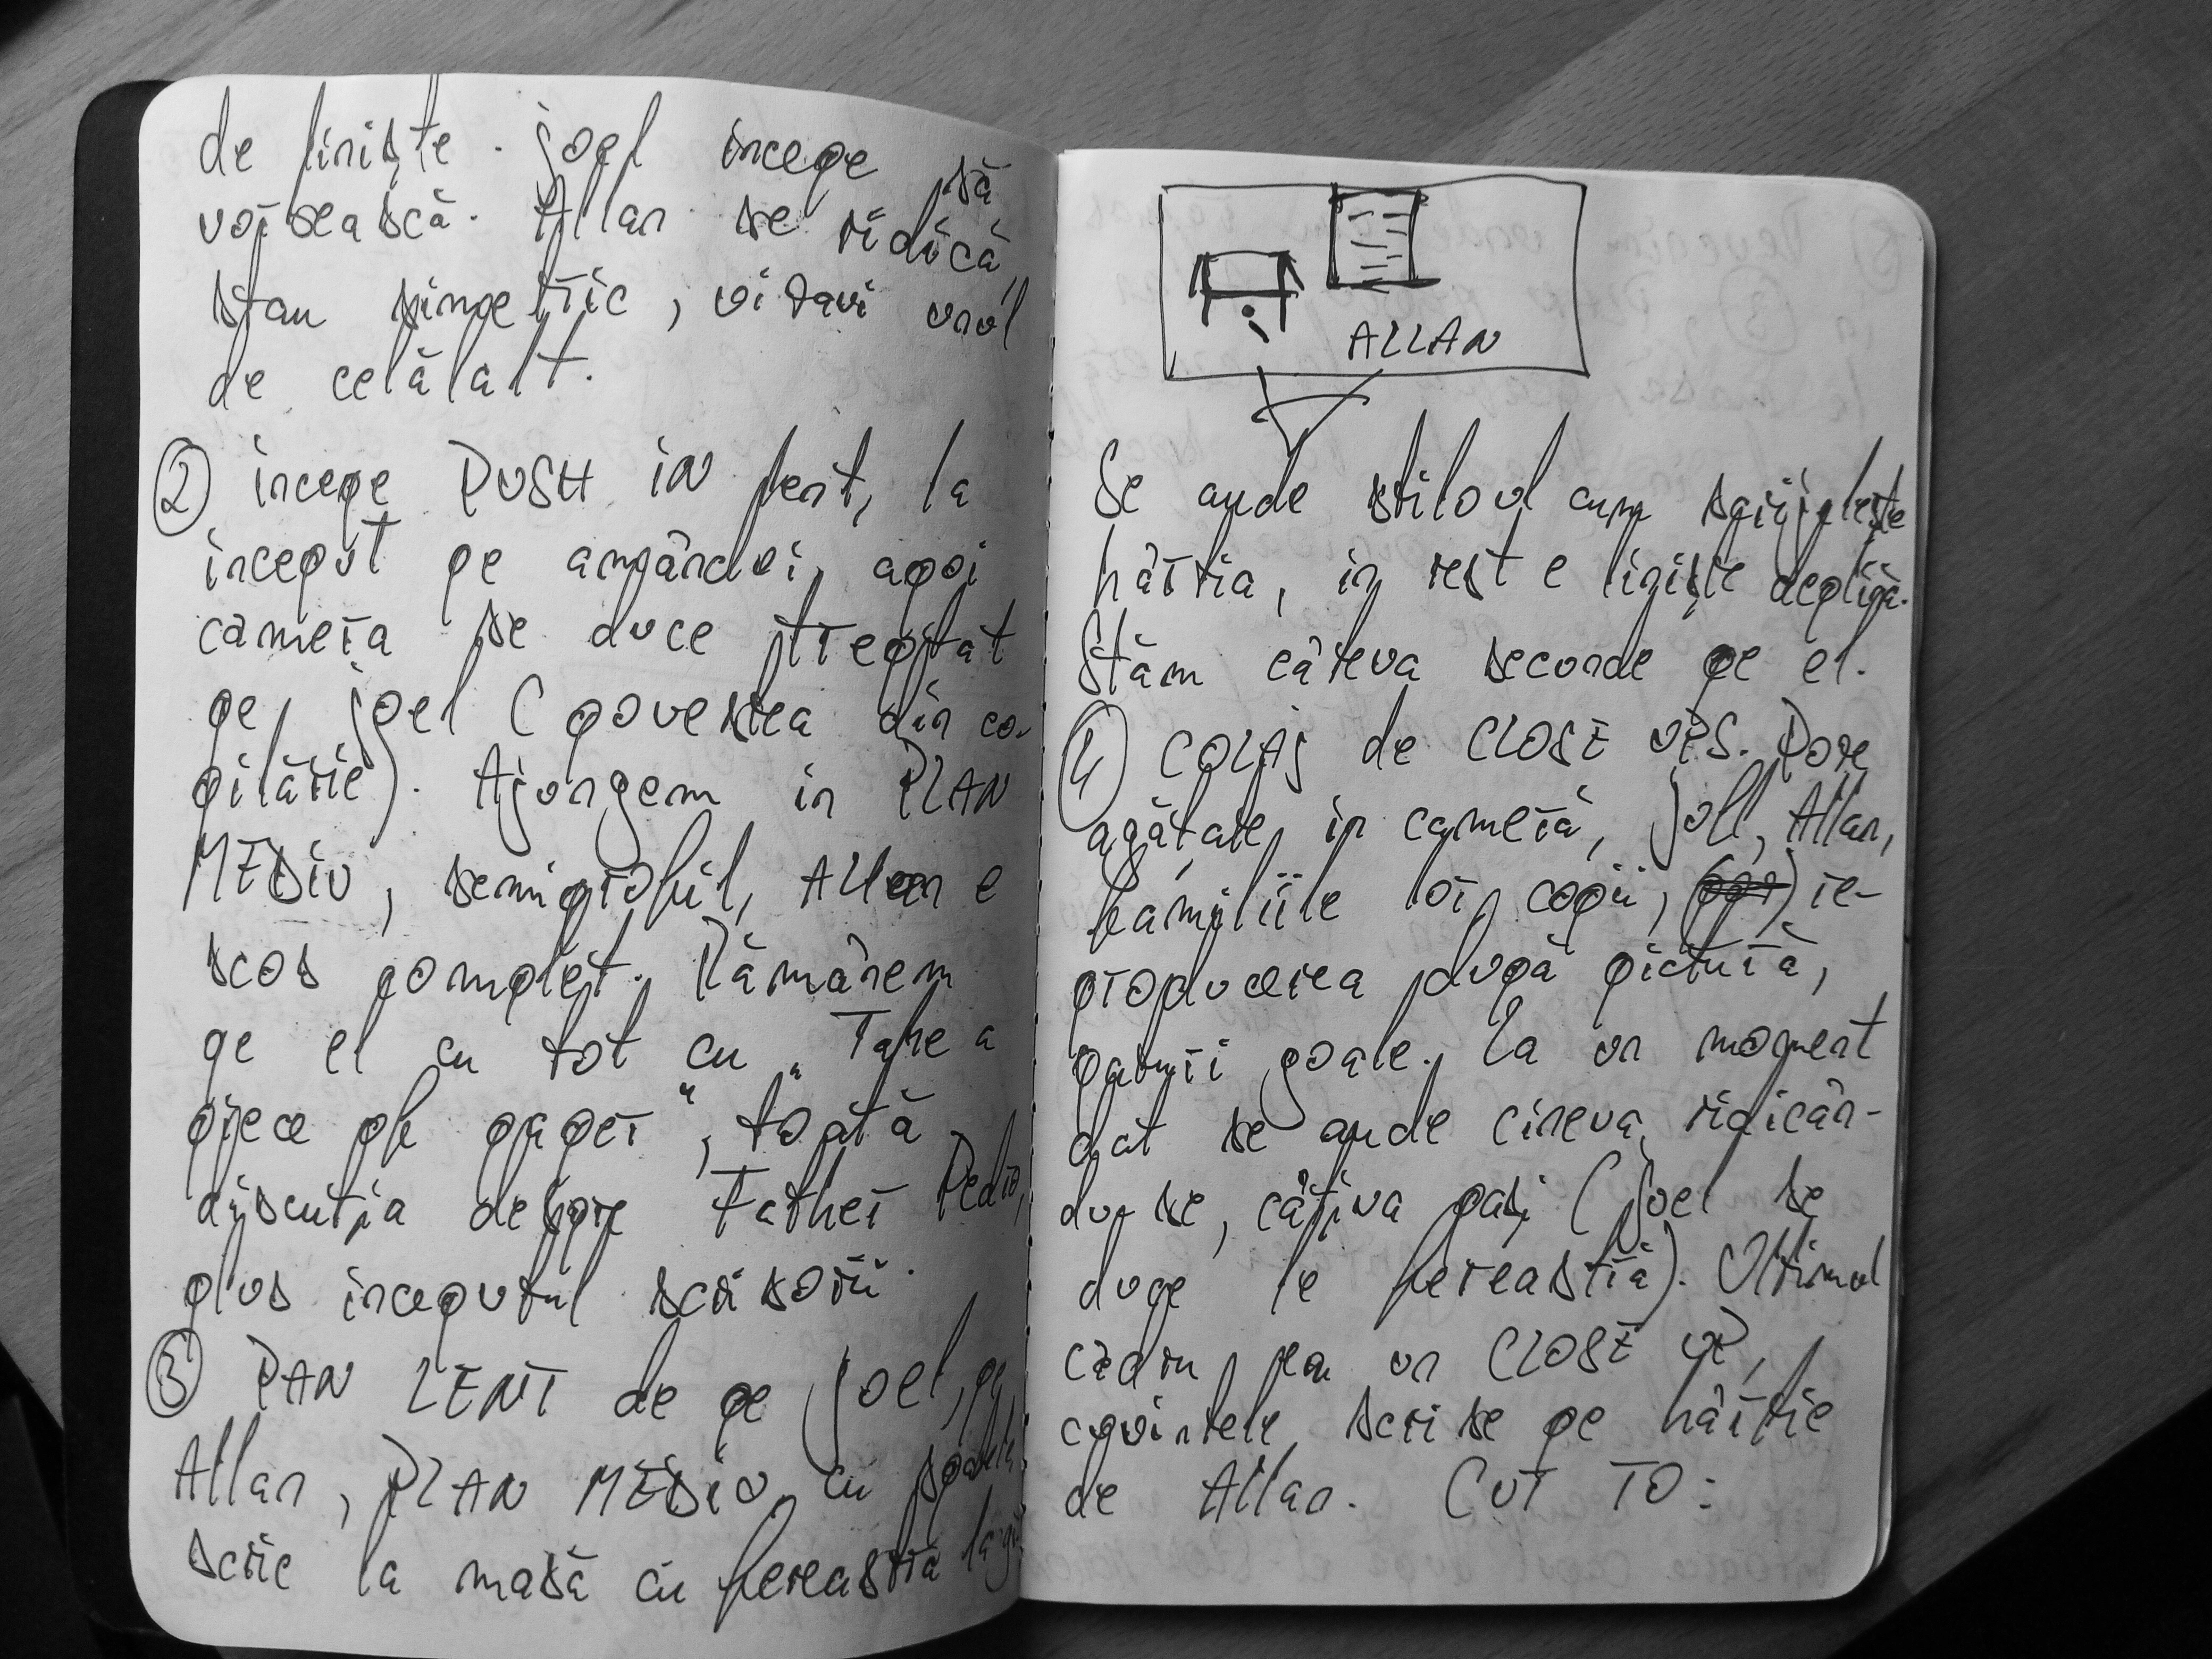 de liniște. Joel incepe să
vorbească. Allan se ridică,
stau simetric, vizavi unul
de celălalt.
2 incepe PUSH IN lent, la
inceput pe amândoi, apoi
camera se duce treptat
pe Joel (povestea din co-
pilărie). Ajungem in PLAN
MEDIU, semiprofil, Allan e
scos complet. Rămânem
pe el cu tot cu "Take a
piece of paper", toată
discuția despre Father Pedro,
plus inceputul scrisorii.
3 PAN LENT de pe Joel, pe
Allan, PLAN MEDIU cu spatele,
scrie la masă cu fereastra
ALLAN
Se aude stiloul cum sgrijelește
hârtia, in rest e liniște deplină.
Stăm câteva secunde pe el.
4 COLAJ de CLOSE UPS. Poze
agățate in cameră, Joel, Allan,
familiile lor, copii, re-
producerea după pictură,
paturi goale. La un moment
dat se aude cineva ridicân-
du-se, câțiva pași (Joel se
duce le fereastră). Ultimul
cadru, pe un CLOSE UP,
cuvintele scrise pe hârtie
de Allan. CUT TO: